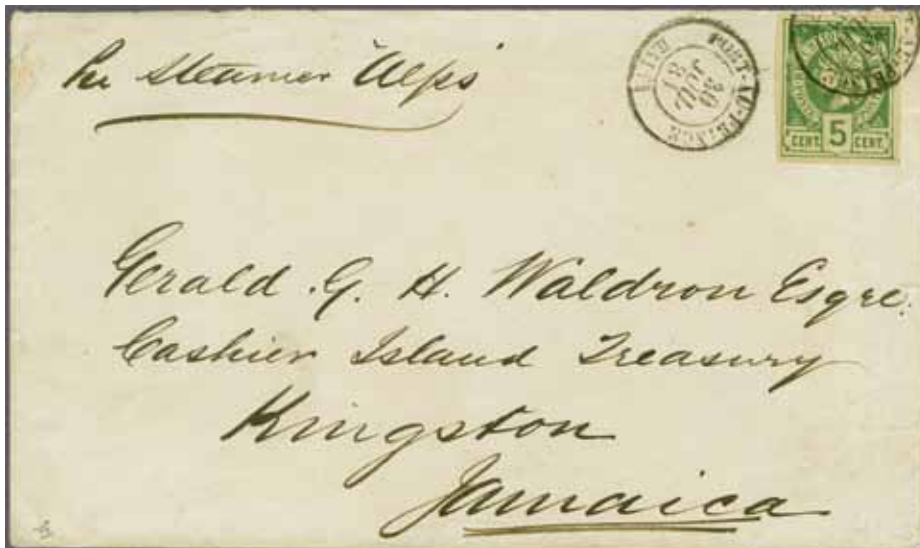 Per Steamer "Alps"
HAITI PORT-AU-PRINCE
CENT. 5 CENT.
Gerald . G. H. Waldron Esqre.
Cashier Island Treasury
Kingston
Jamaica